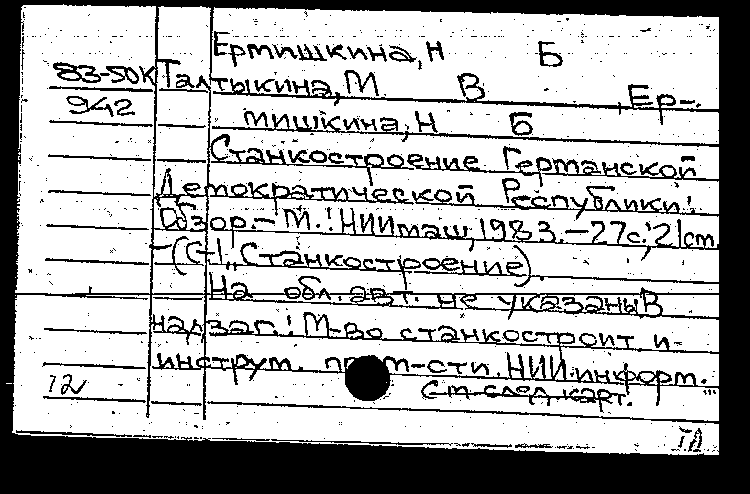 Ермишкина, Н Б
83-50К Талтыкина, М. В , Ер-
942 мишкина, Н Б
Станкостроение Германской
Демократической Республики:
Обзор.-М.: НИИмаш, 1983.-27с; 21 см.
-(С-1 „Станкостроение).
На обл. авт. не указаны В
надзаг.: М-во станкостроит. и
инструм. пром-сти. НИИ информ.
12 См. след. карт.